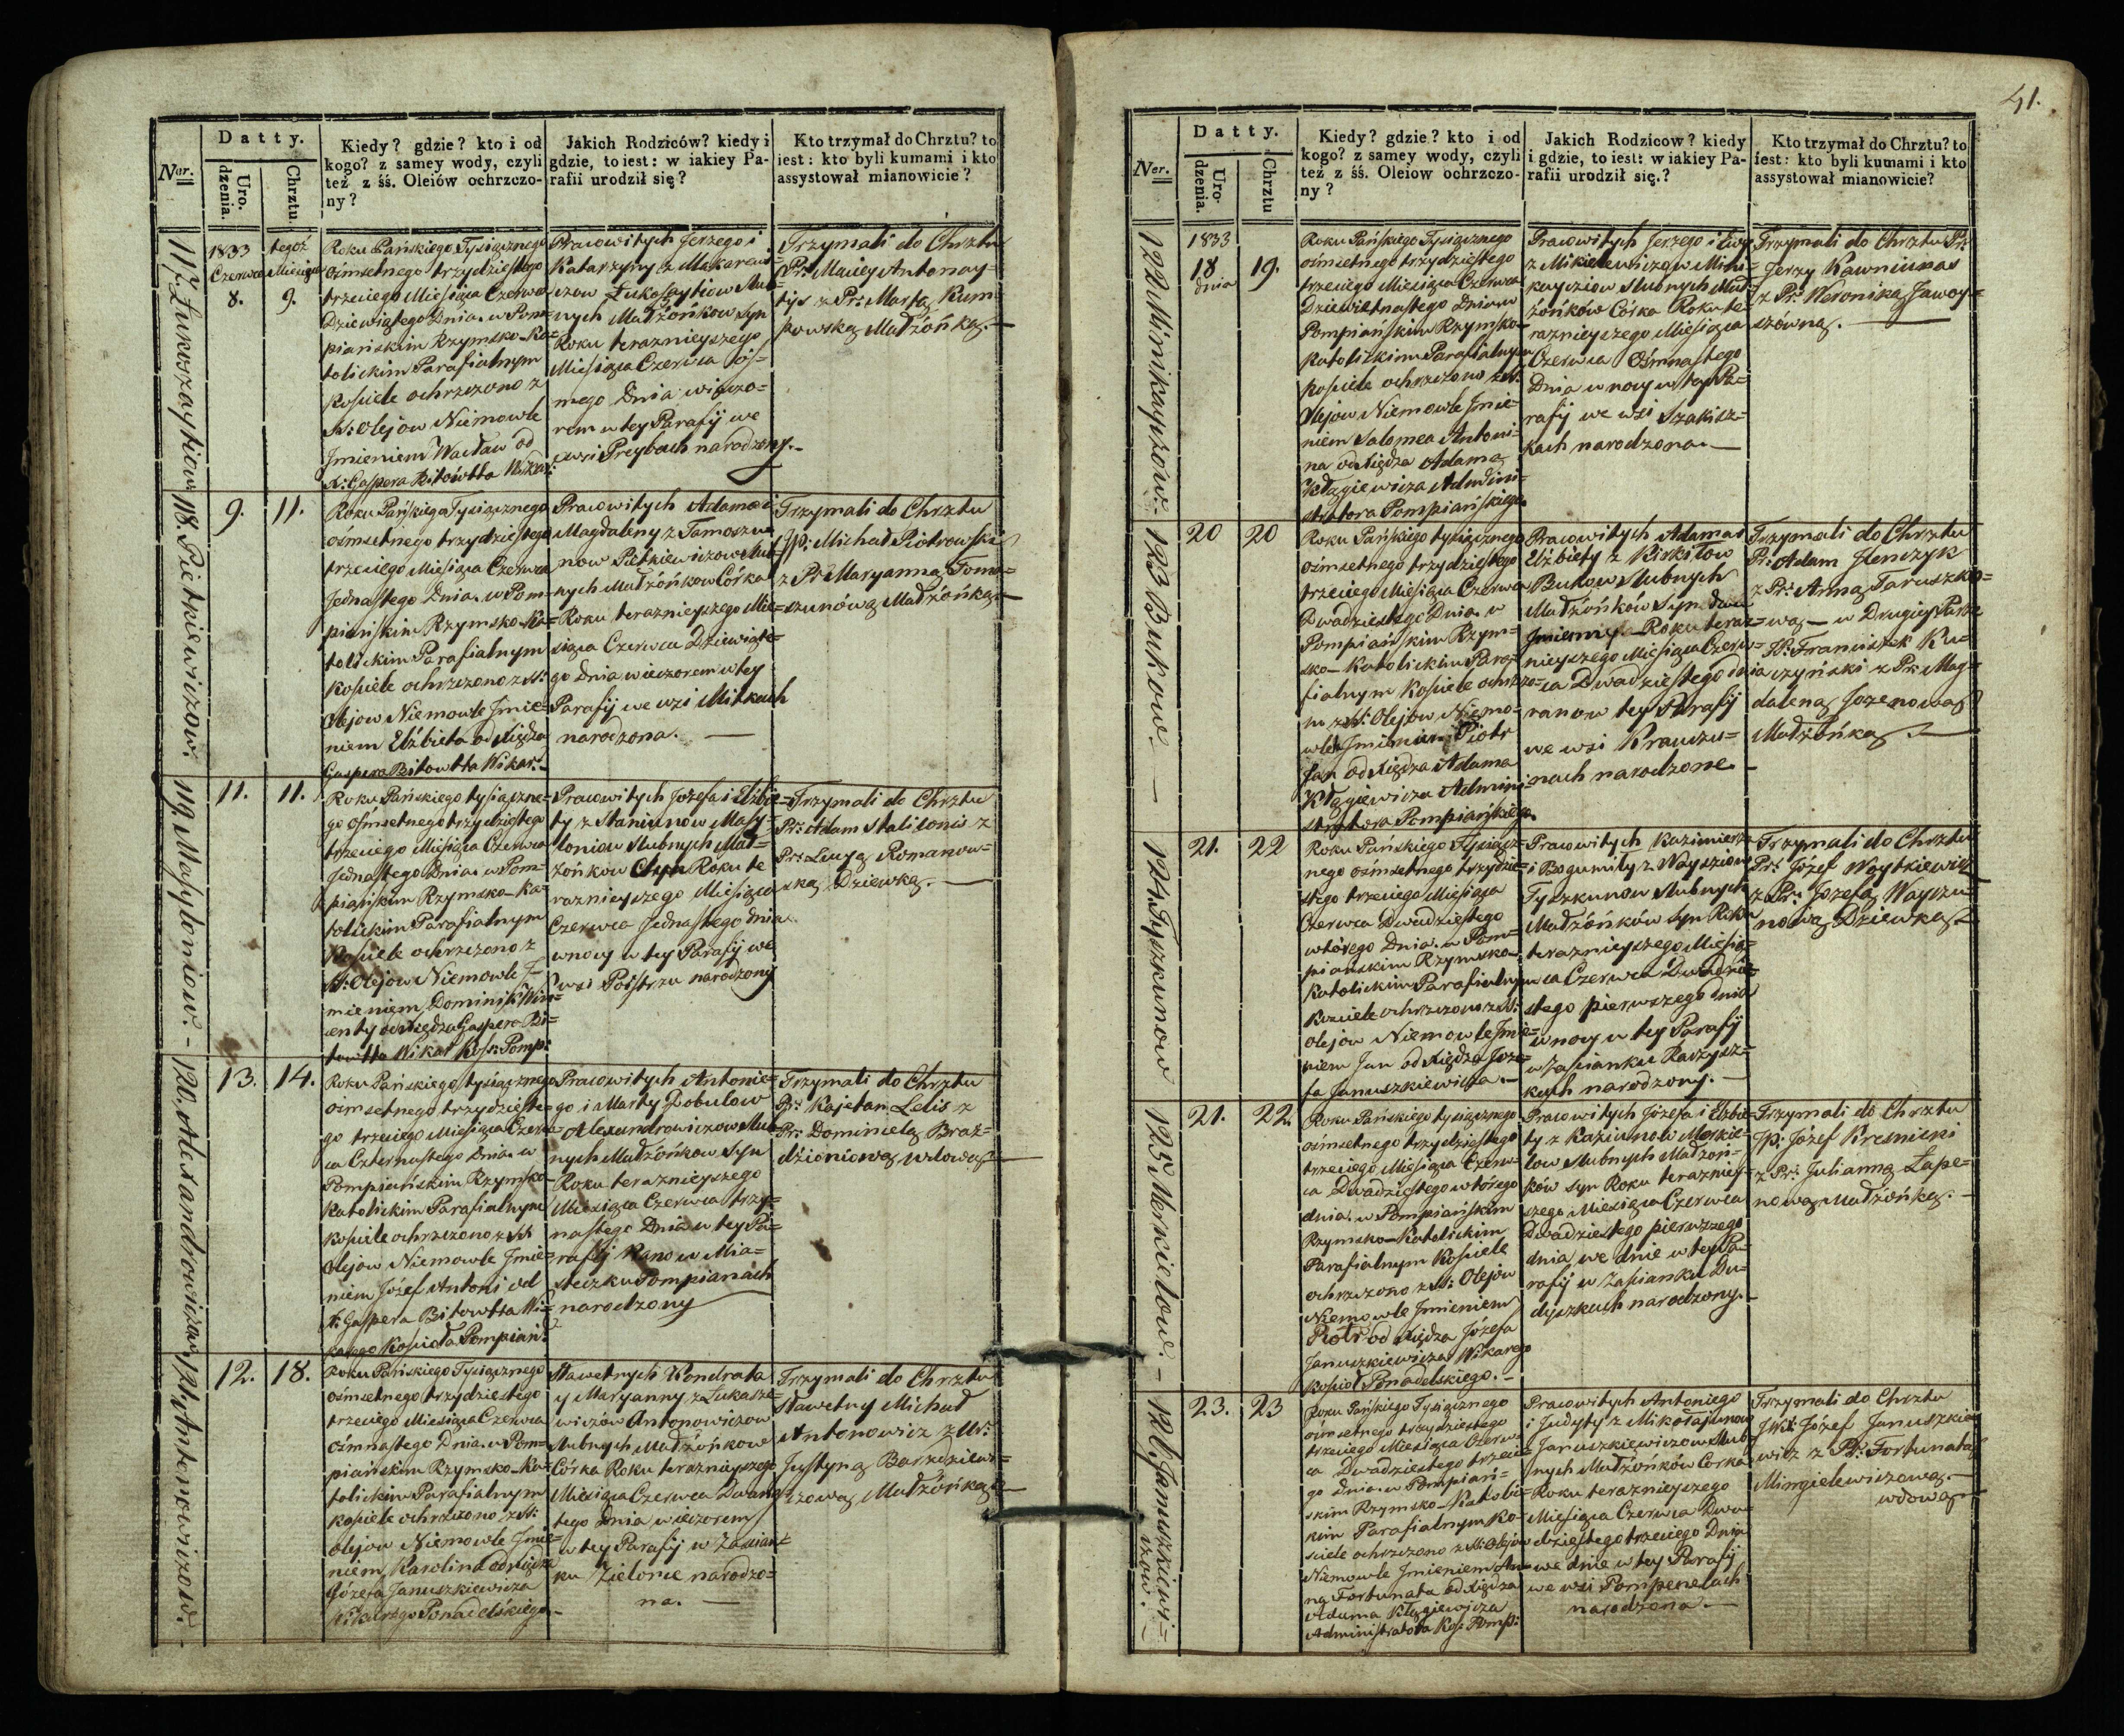 Ner.
Datty.
Uro.
dzenia.
Chrztu
Kiedy? gdzie? kto i od
kogo? z samey wody, czyli
też z śś. Oleiów ochrzczo-
ny?
Jakich Rodziców? kiedy i
gdzie, to iest: w iakiey Pa-
rafii urodził się?
Kto trzymał do Chrztu? to
iest: kto byli kumami i kto
assystował mianowicie?
117. Łukoszaytiow
1833
Czerwca
8.
tegoż
Miesiąca
9.
Roku Pańskiego Tysiącznego
ośmsetnego trzydziestego
trzeciego Miesiąca Czerwca
Dziewiątego Dnia. w Pom=
piańskim Rzymsko-Ka=
tolickim Parafialnym
Kosciele ochrzczono z
SS: Olejow Niemowle
Jmieniem Wacław od
X: Gaspera Bitowtta Wikar:
Pracowitych Jerzego i
Katarzyny z Makarew=
iczow Łukoszaytiow Slub=
nych Małżonkow Syn
Roku teraznieyszego
Miesiąca Czerwca ós=
mego Dnia wieczo=
rem w tey Parafij we
wsi Preybach narodzony.-
Trzymali do Chrztu
Pr: Maciey Antonay=
tys z Pr: Martą Rum
powską Małżonką.-
118. Pietkiewiczow.
9.
11.
Roku Pańskiego Tysiącznego
ośmsetnego trzydziestego
trzeciego Miesiąca Czerwca
Jednastego Dnia. w Pom=
piańskim Rzymsko-Ka=
tolickim Parafialnym
Kosciele ochrzczono z SS:
Olejow Niemowle Jmie=
niem Elżbieta od Xiędza
Gaspera Bitowtta Wikar:-
Pracowitych Adama i
Magdaleny z Tamoszu=
now Pietkiewiczow Slub=
nych Małżonkow Córka
Roku teraznieyszego Mie=
siąca Czerwca Dziewiąte=
go Dnia wieczorem w tey
Parafij we wsi Mitkach
narodzona.-
Trzymali do Chrztu
JP: Michał Piotrowski
z Pr: Maryanną Toma=
szunową Małżonką.-
119. Masyloniow.-
11.
11.
Roku Pańskiego tysiączne=
go ośmsetnego trzydziestego
trzeciego Miesiąca Czerwca
Jednastego Dnia. w Pom=
piańskim Rzymsko-Ka=
tolickim Parafialnym
Kosciele ochrzczono z
SS: Olejow Niemowle J=
mieniem Dominik Win=
centy od Xiędza Gaspera Bi=
towtta Wikar Kos: Pomp:
Pracowitych Jozefa i Elżbie=
ty z Staniunow Masy=
loniow Slubnych Mał=
żonkow Syn Roku te
raznieyszego Miesiąca
Czerwca Jednastego dnia
w nocy w tey Parafij we
wsi Poistrzu narodzony
Trzymali do Chrztu
Pr: Adam Stalilonis z
Pr: Lucyą Romanow=
ską Dziewką.-
120. Alexandrowiczow
13.
14.
Roku Pańskiego tysiącznego
ośmsetnego trzydzieste=
go trzeciego Miesiąca Czerw=
ca Czternastego Dnia. w
Pompiańskim Rzymsko-
Katolickim Parafialnym
Kosciele ochrzczono z SS
Olejow Niemowle Jmie=
niem Józef Antoni od
X: Gaspera Bitowtta Wi=
karego Koscioła Pompiań:
Pracowitych Antonie=
go i Marty z Dobulow
Alexandrowiczow Slub=
nych Małżonkow Syn
Roku teraznieyszego
Miesiąca Czerwca trzy=
nastego Dnia w tey Pa=
rafij Rano w Mia=
steczku Pompianach
narodzony
Trzymali do Chrztu
Pr: Kajetan Lelis z
Pr: Dominiela Braź=
dzioniową wdową-
121. Antonowiczow.-
12.
18.
Roku Pańskiego Tysiącznego
ośmsetnego trzydziestego
trzeciego Miesiąca Czerwca
ośmnastego Dnia. w Pom=
piańskim Rzymsko-Ka=
tolickim Parafialnym
Kosciele ochrzczono z SS:
olejow Niemowle Jmie=
niem Karolina od Xiędza
Józefa Januszkiewicza
Wikarego Ponadelskiego.-
Sławetnych Kondrata
y Maryanny z Łukasze=
wiczów Antonowiczow
Slubnych Małżonkow
Córka Roku teraznieyszego
Miesiąca Czerwca Dwunas=
tego Dnia wieczorem
w tey Parafij w Zascian=
ku Zielonce narodzo=
na.-
Trzymali do Chrztu
Sławetny Michał
Antonowicz z Ur:
Justyną Barzdziew=
iczową Małżonką.-
41.
Ner.
Datty.
Uro-
dzenia.
Chrztu
Kiedy? gdzie? kto i od
kogo? z samey wody, czyli
też z śś. Oleiow ochrzczo-
ny?
Jakich Rodzicow? kiedy
i gdzie, to iest: w iakiey Pa-
rafii urodził się.?
Kto trzymał do Chrztu? to
iest: kto byli kumami i kto
assystował mianowicie?
122. Minikayczow.-
1833
18
dnia
19.
Roku Pańskiego Tysiącznego
ośmsetnego trzydziestego
trzeciego Miesiąca Czerwca
Dziewietnastego Dnia. w
Pompiańskim Rzymsko-
Katolickim Parafialnym
Kosciele ochrzczono z SS:
Olejow Niemowle Jmie=
niem Salomea Antoni=
na od Xiędza Adama
Kłągiewicza Admini=
stratora Pompiańskiego.
Pracowitych Jerzego i Ewy
z Mikielewiczow Mini=
kayciow Slubnych Mał=
żonków Córka Roku te=
raznieyszego Miesiąca
Czerwca Ośmnastego
Dnia w nocy w tey Pa=
rafij we wsi Szakisz=
kach narodzona.-
Trzymali do Chrztu Pr:
Jerzy Kawniunas
z Pr: Weroniką Jawoy=
szówną.-
123. Bukow.-
20
20
Roku Pańskiego tysiącznego
ośmsetnego trzydziestego
trzeciego Miesiąca Czerwca
Dwadziestego Dnia. w
Pompiańskim Rzym=
sko-Katolickim Para=
fialnym Kosciele ochrzczo=
no z SS: Olejow Niemo=
wle Jmieniem Piotr
Jan od Xiędza Adama
Kłągiewicza Admini=
stratora Pompiańskiego.
Pracowitych Adama i
Elżbiety z Kirkiłow
Bukow Slubnych
Małżonków Syn dwu
Jmienny.- Roku teraz=
nieyszego Miesiąca Czerw=
ca Dwadziestego dnia
rano w tey Parafij
we wsi Krauczu=
nach narodzone.-
Trzymali do Chrztu
Pr: Adam Jenczyk
z Pr: Anną Taruszkie=
wą - w Drugiey Parze
W: Franciszek Ku=
czyński z Pr: Mag=
daleną Jozenową
Małżonką.-
124. Tyszkunow
21.
22
Roku Pańskiego Tysiącz=
nego ośmsetnego trzydzie=
stego trzeciego Miesiąca
Czerwca Dwadziestego
wtórego Dnia. w Pom=
piańskim Rzymsko-
Katolickim Parafialnym
Kosciele ochrzczono z SS:
Olejow Niemowle Jmie=
niem Jan od Xiędza Joze=
fa Januszkiewicza.-
Pracowitych Kazimierza
i Bogumiły z Wayszionow
Tyszkunow Slubnych
Małżonków Syn Roku
teraznieyszego Miesią=
ca Czerwca Dwadzie=
stego pierwszego dnia
w nocy w tey Parafij
w Zascianku Raczysz=
kach narodzony.-
Trzymali do Chrztu
Pr: Józef Woytkiewicz
z Pr: Jozefą Wayszu=
nową Dziewką.-
125. Merkielow.-
21.
22.
Roku Pańskiego tysiącznego
ośmsetnego trzydziestego
trzeciego Miesiąca Czerw=
ca Dwadziestego wtórego
dnia. w Pompiańskim
Rzymsko-Katolickim
Parafialnym Kosciele
ochrzczono z SS: Olejow
Niemowle Jmieniem
Piotr od Xiędza Józefa
Januszkiewicza Wikarego
Kościoł Ponadelskiego.-
Pracowitych Józefa i Elżbie=
ty z Kaziunow Merkie=
low Slubnych Małżon=
ków Syn Roku teraznie=
szego Miesiąca Czerwca
Dwadziestego pierwszego
dnia we dnie w tey Pa=
rafij w Zascianku Du=
dyszkach narodzony.-
Trzymali do Chrztu
JP: Józef Kresnicki
z Pr: Julianną Łape=
nową Małżonką.-
126. Januszkiewi=
czow.-
23.
23
Roku Pańskiego Tysiącznego
ośmsetnego trzydziestego
trzeciego Miesiąca Czerw=
ca Dwadziestego trzecie=
go Dnia. w Pompiań=
skim Rzymsko-Katolic=
kim Parafialnym Ko=
sciele ochrzczono z SS: Olejow
Niemowle Jmieniem An=
na Fortunata od Xiędza
Adama Kłągiewicza
Administratora Kos: Pomp:
Pracowitych Antoniego
i Judyty z Mikołajunow
Januszkiewiczow Slub=
nych Małżonków Córka
Roku teraznieyszego
Miesiąca Czerwca Dwa=
dziestego trzeciego Dnia
we dnie w tey Parafij
we wsi Pompenelach
narodzona.-
Trzymali do Chrztu
JWX: Józef Januszkie=
wicz z Pr: Fortunatą
Mingielewiczową.-
wdową-